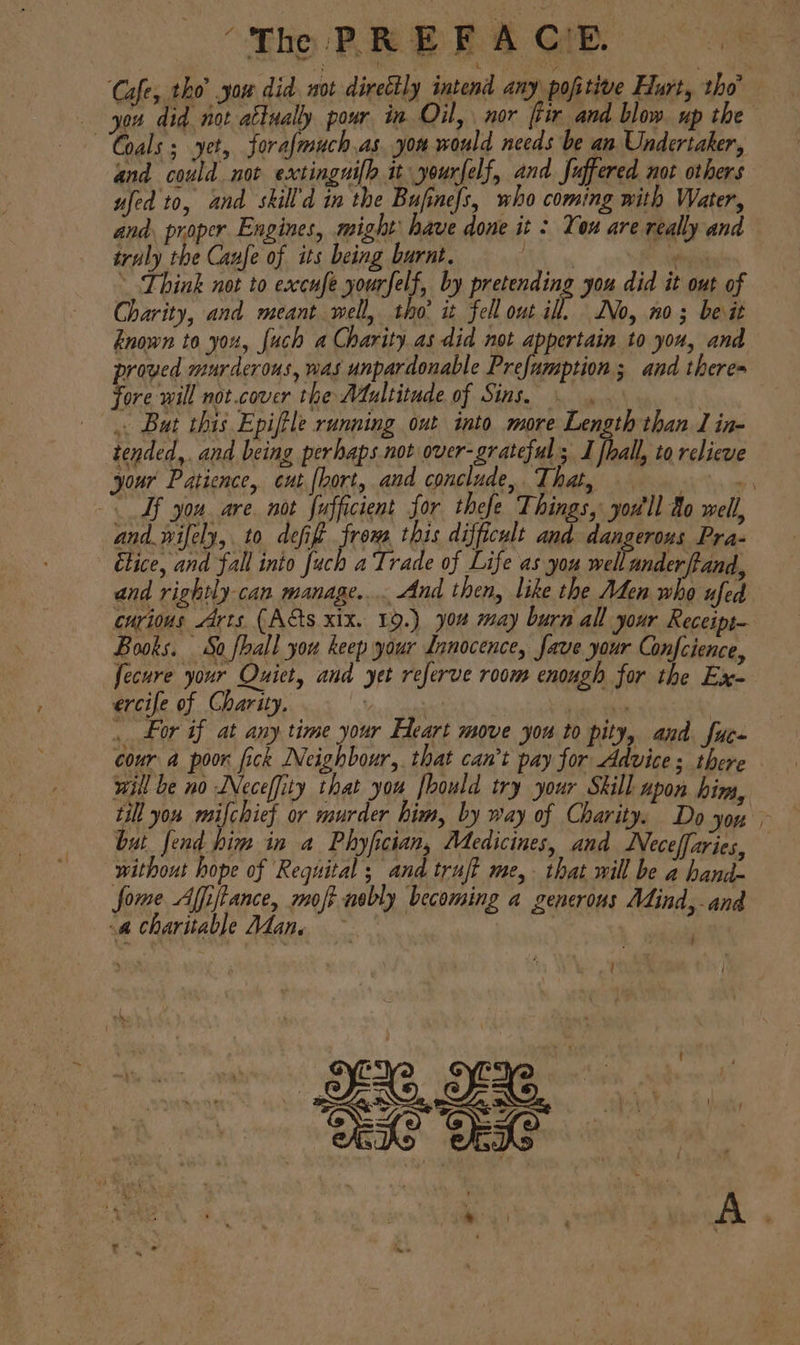 The PREFACE.
Caſe, tho' you did not directly intend any poſitive Hurt, tho'
you did not actually pour in Oil, nor ſtir and blow up the
Coals; yet, foraſmuch as you would needs be an Undertaker,
and could not extinguiſh it yourſelf, and ſuffered not others
uſed to, and skill'd in the Buſineſs, who coming with Water,
and proper Engines, might have done it: You are really and
truly the Cauſe of its being burnt.
Think not to excuſe yourſelf, by pretending you did it out of
Charity, and meant well, tho' it fell out ill. No, no; be it
known to you, ſuch a Charity as did not appertain to you, and
proved murderous, was unpardonable Preſumption; and there-
fore will not cover the Multitude of Sins.
But this Epiſtle running out into more Length than I in-
tended, and being perhaps not over-grateful; I ſhall, to relieve
your Patience, cut ſhort, and conclude, That,
If you are not ſufficient for theſe Things, you'll do well,
and wiſely, to deſiſt from this difficult and dangerous Pra-
ctice, and fall into ſuch a Trade of Life as you well underſtand,
and rightly can manage. And then, like the Men who uſed
curious Arts (Acts xix. 19.) you may burn all your Receipt-
Books. So ſhall you keep your Innocence, ſave your Conſcience,
ſecure your Quiet, and yet reſerve room enough for the Ex-
erciſe of Charity.
For if at any time your Heart move you to pity, and ſuc-
cour a poor ſick Neighbour, that can't pay for Advice; there
will be no Neceſſity that you ſhould try your Skill upon him,
till you miſchief or murder him, by way of Charity. Do you
but ſend him in a Phyſician, Medicines, and Neceſſaries,
without hope of Requital; and truſt me, that will be a hand-
ſome Aſſiſtance, moſt nobly becoming a generous Mind, and
a charitable Man.
A